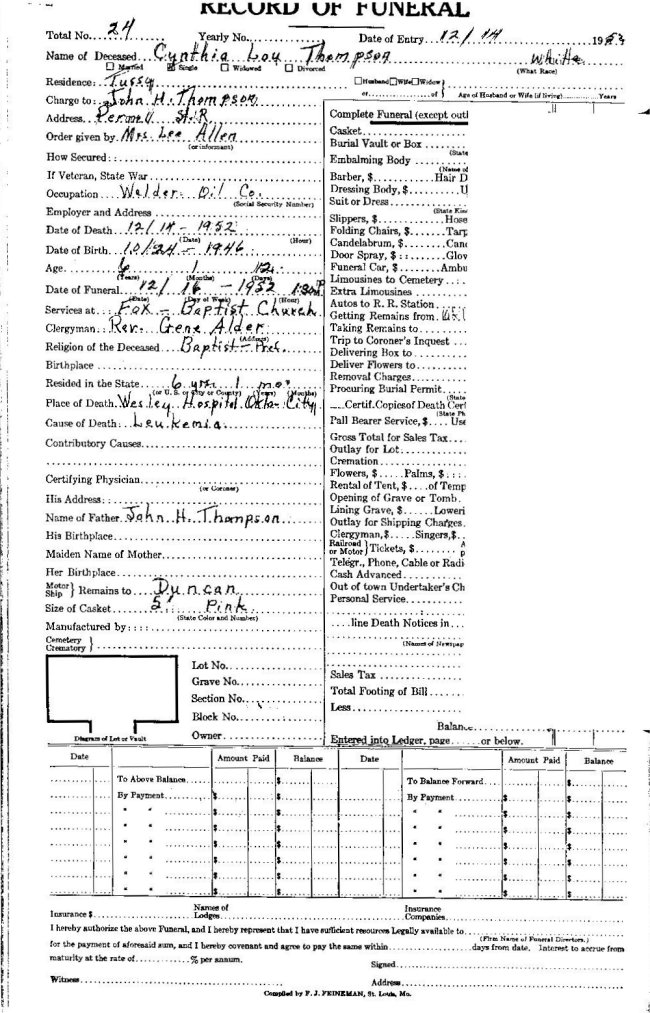 RECORD OF FUNERAL
Total No. 24 Yearly No. Date of Entry 12/14 19
Name of Deceased Cynthia Lou Thompson White
☐ Married ☒ Single ☐ Widowed ☐ Divorced (What Race)
Residence: Tussy ☐Husband☐Wife☐Widow}
or of } Age of Husband or Wife (if living) Years
Charge to: John H. Thompson
Address St. R
Order given by Mrs. Lee Allen
(or informant)
How Secured:
If Veteran, State War
Occupation Welder Oil Co.
(Social Security Number)
Employer and Address
Date of Death 12/14 - 1952
(Date) (Hour)
Date of Birth 10/24 - 1946
Age 6 1
(Years) (Months) (Days)
Date of Funeral 12/16 - 1952 1:30P
(Date) (Day of Week) (Hour)
Services at Fox - Baptist Church
Clergyman: Rev. Gene Alder
(Address)
Religion of the Deceased Baptist - Pref.
Birthplace
Resided in the State 6 yrs. 1 mo.
(or U. S. or City or County) (Years) (Months)
Place of Death Wesley Hospital Okla City
Cause of Death: Leukemia
Contributory Causes
Certifying Physician
(or Coroner)
His Address:
Name of Father John H. Thompson
His Birthplace
Maiden Name of Mother
Her Birthplace
Motor
Ship } Remains to Duncan
Size of Casket 5' Pink
(State Color and Number)
Manufactured by:
Cemetery
Crematory }
Lot No.
Grave No.
Section No.
Block No.
Owner
Diagram of Lot or Vault
Complete Funeral (except outl
Casket
Burial Vault or Box
(State
Embalming Body
(Name of
Barber, $ Hair D
Dressing Body, $ U
Suit or Dress
(State Kind
Slippers, $ Hose
Folding Chairs, $ Tarp
Candelabrum, $ Cand
Door Spray, $ Glov
Funeral Car, $ Ambu
Limousines to Cemetery
Extra Limousines
Autos to R. R. Station
Getting Remains from
Taking Remains to
Trip to Coroner's Inquest
Delivering Box to
Deliver Flowers to
Removal Charges
Procuring Burial Permit
(State
Certif.Copies of Death Cert
(State Ph
Pall Bearer Service, $ Use
Gross Total for Sales Tax
Outlay for Lot
Cremation
Flowers, $ Palms, $
Rental of Tent, $ of Temp
Opening of Grave or Tomb
Lining Grave, $ Loweri
Outlay for Shipping Charges
Clergyman, $ Singers, $
Railroad
or Motor } Tickets, $
Telegr., Phone, Cable or Radi
Cash Advanced
Out of town Undertaker's Ch
Personal Service
line Death Notices in
(Names of Newspap
Sales Tax
Total Footing of Bill
Less
Balan
Entered into Ledger, page or below.
Date Amount Paid Balance Date Amount Paid Balance
To Above Balance $ To Balance Forward $
By Payment $ $ By Payment $ $
" " $ $ " " $ $
" " $ $ " " $ $
" " $ $ " " $ $
" " $ $ " " $ $
" " $ $ " " $ $
" " $ $ " " $ $
Insurance $ Names of Lodges Insurance Companies
I hereby authorize the above Funeral, and I hereby represent that I have sufficient resources Legally available to
(Firm Name of Funeral Directors.)
for the payment of aforesaid sum, and I hereby covenant and agree to pay the same within days from date. Interest to accrue from
maturity at the rate of % per annum. Signed
Witness Address
Compiled by F. J. FEINEMAN, St. Louis, Mo.